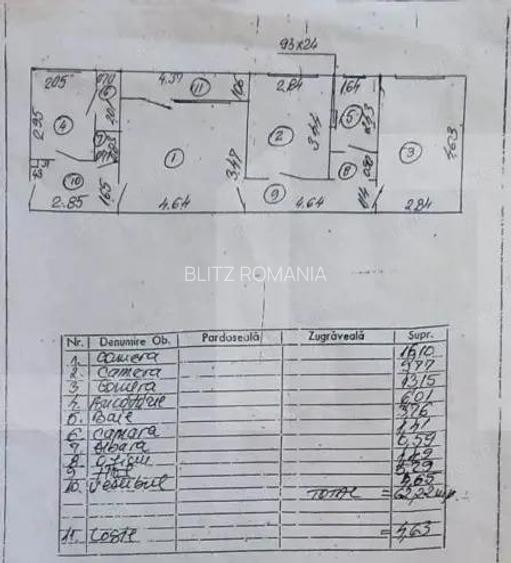 93x24
205
4.37
11
106
2.84
164
6
295
4
7
1
2
5
3
3.47
3.44
4.63
10
8
9
43
165
2.85
4.64
4.64
2.84
BLITZ ROMANIA
Nr. Denumire Ob. Pardoseală Zugrăveală Supr.
1. Camera 16,10
2 Camera 9,77
3 Camera 13,15
4. Bucătărie 6,01
5. Baie 3,76
6 Camara 1,41
7 Debara 0,59
8 1,49
9 Hol 5,29
10. Vestibul 4,65
TOTAL = 62,22 mp.
11. Logie = 4,63